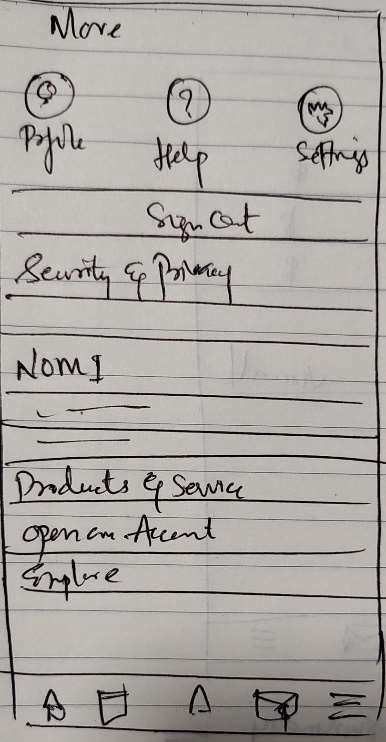 More
?
Profile Help Settings
Sign Out
Security & Privacy
NOMI
Products & Service
open an Account
Explore